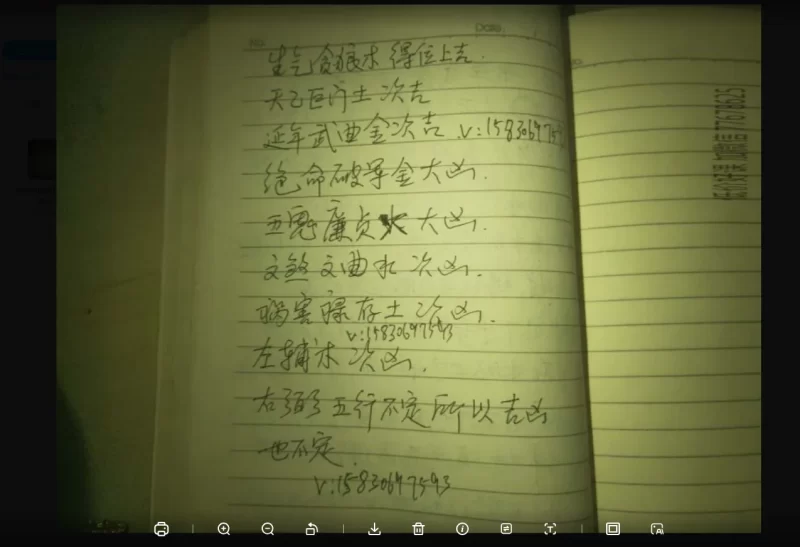 NO.
Date:
生气贪狼木 得位上吉.
天乙巨门土 次吉
延年武曲金次吉 v:158306975
绝命破军金大凶.
五鬼廉贞火大凶.
文煞文曲水 次凶.
祸害禄存土 次凶.
v:15830697593
左辅木 次凶.
右弼 五行不定所以吉凶
也不定.
v:15830697593